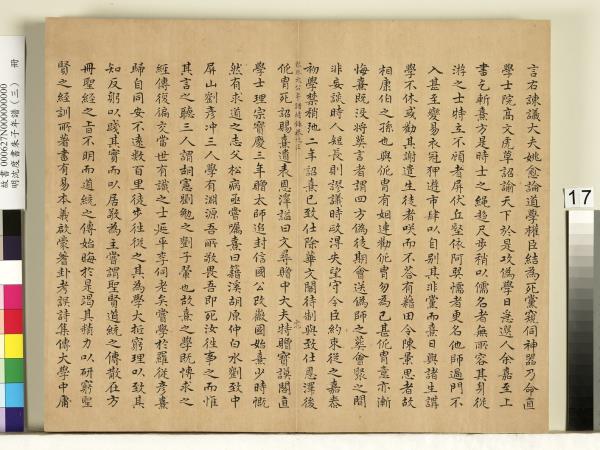 言右諫議大夫姚愈論道學權臣結為死黨窺伺神器乃命直
學士院高文虎草詔諭天下於是攻偽學日急選人余嘉至上
書乞斬熹方是時士之繩趨尺步稍以儒名者無所容其身從
游之士特立不顧者屏伏丘壑依阿巽懦者更名他師過門不
入甚至變易衣冠狎遊市肆以自别其非黨而熹日與諸生講
學不休或勸其謝遣生徒者咲而不答有籍田令陳景思者故
相康伯之孫也與侂胄有姻連勸侂胄勿為已甚侂胄意亦漸
悔熹既没將葬言者謂四方偽徒期會送偽師之葬會聚之間
非妄談時人短長則謬議時政得失望守令臣約束從之嘉泰
初學禁稍弛二年詔熹已致仕除華文閣待制與致仕恩澤後
侂胄死詔賜熹遺表恩澤謚曰文尋贈中大夫特贈寶謨閣直
學士理宗寶慶三年贈太師追封信國公改徽國始熹少時慨
然有求道之志父松病亟嘗屬熹曰籍溪胡原仲白水劉致中
屏山劉彥冲三人學有淵源吾所敬畏吾即死汝往事之而惟
其言之聽三人謂胡憲劉勉之劉子翬也故熹之學既博求之
經傳復徧交當世有識之士延平李侗老矣嘗學於羅從彥熹
歸自同安不遠數百里徒步往從之其為學大抵窮理以致其
知反躬以踐其實而以居敬為主嘗謂聖賢道統之傳散在方
冊聖經之旨不明而道統之傳始晦於是渴其精力以研窮聖
賢之經訓所著書有易本義啟蒙蓍卦考誤詩集傳大學中庸
17
故書000627N000000000
明沈度書朱子年譜（三）
府